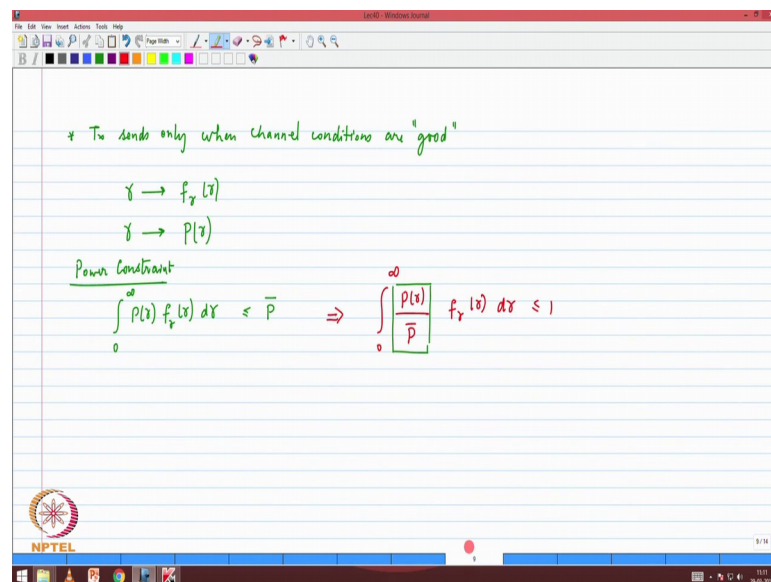 Lec40 - Windows Journal
File Edit View Insert Actions Tools Help
Page Width
B I
* Tx sends only when channel conditions are "good"
γ → f_γ(γ)
γ → P(γ)
Power Constraint
∫_0^∞ P(γ) f_γ(γ) dγ ≤ P̄ ⇒ ∫_0^∞ P(γ)/P̄ f_γ(γ) dγ ≤ 1
NPTEL
9/14
11:11